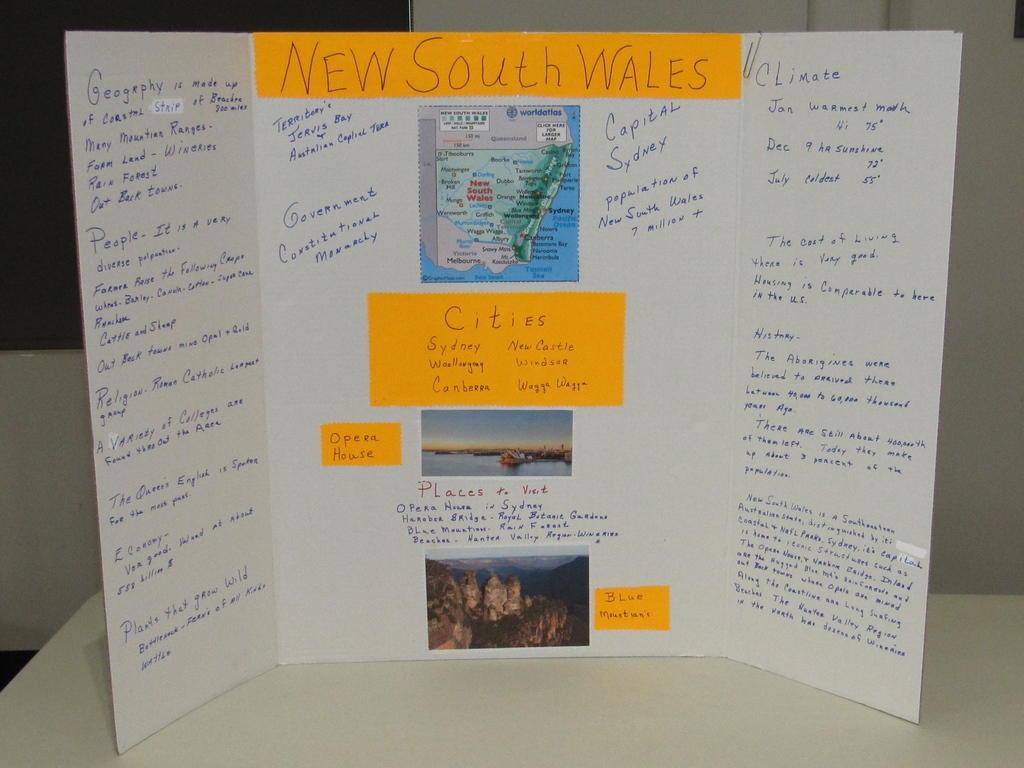 NEW South WALES
Geogrphy is made up
of Coastal Strip of Beaches
800 miles
Many Mountain Ranges-
Farm Land - Wineries
Rain Forest
Out Back towns.
People- It is a very
diverse polpoation.
Farmer Raise the Following Crops
Wheat-Barley-Canola-Cotton-Sugar Cane
Ranchers
Cattle and Sheep
Out Back towns mine Opal + Gold
Religion- Roman Catholic Largest
group
A Variety of Colleges are
Found thro Out the Area
The Queen's English is Spoken
For the most part.
Economy-
Very good. Valued at About
558 billion $
Plants that grow Wild
Bottlebrush - Ferns of All Kinds
Wattle
Territory's
Jervis Bay
Australian Capital Terr
Government
Constitutional
Monarchy
NEW SOUTH WALES
worldatlas
CLICK HERE
FOR LARGER
MAP
150 mi
150 km
Queensland
Tibooburra
Bourke
Broken
Hill
Dubbo
Tamworth
New
South
Wales
Newcastle
Wentworth
Griffith
Wagga Wagga
Wollongong
Sydney
Pacific
Ocean
Nowra
Canberra
Albury
Batemans Bay
Narooma
Merimbula
Victoria
Melbourne
Tasman
Sea
Capital
Sydney
population of
New South Wales
7 million +
Cities
Sydney New Castle
Woollongong Windsor
Canberra Wagga Wagga
Opera
House
Places to Visit
Opera House in Sydney
Harobor Bridge - Royal Botanic Gardens
Blue Mountions- Rain Forest
Beaches - Hunter Valley Region-Wineries
Blue
Mountian's
CLimate
Jan warmest month
Hi 75°
Dec 9 hr sunshine
72°
July coldest 55°
The cost of Living
there is very good.
Housing is Comparable to here
in the U.S.
History-
The Aborigines were
believed to arrived there
between 40,000 to 60,000 thousand
years Ago.
There are still about 400,000th
of them left. Today they make
up about 3 percent of the
population.
New South Wales is a Southeastern
Australian State, distinguished by it's
Coastal & Nat'l Parks. Sydney, it's capital
is home to iconic Structures such as
The Opera House & Harbour Bridge. Inland
are the Rugged Blue Mt's Rainforests and
out Back towns where Opals are mined
Along the Coastline are Long Surfing
Beaches. The Hunter Valley Region
in the North has dozens of Wineries